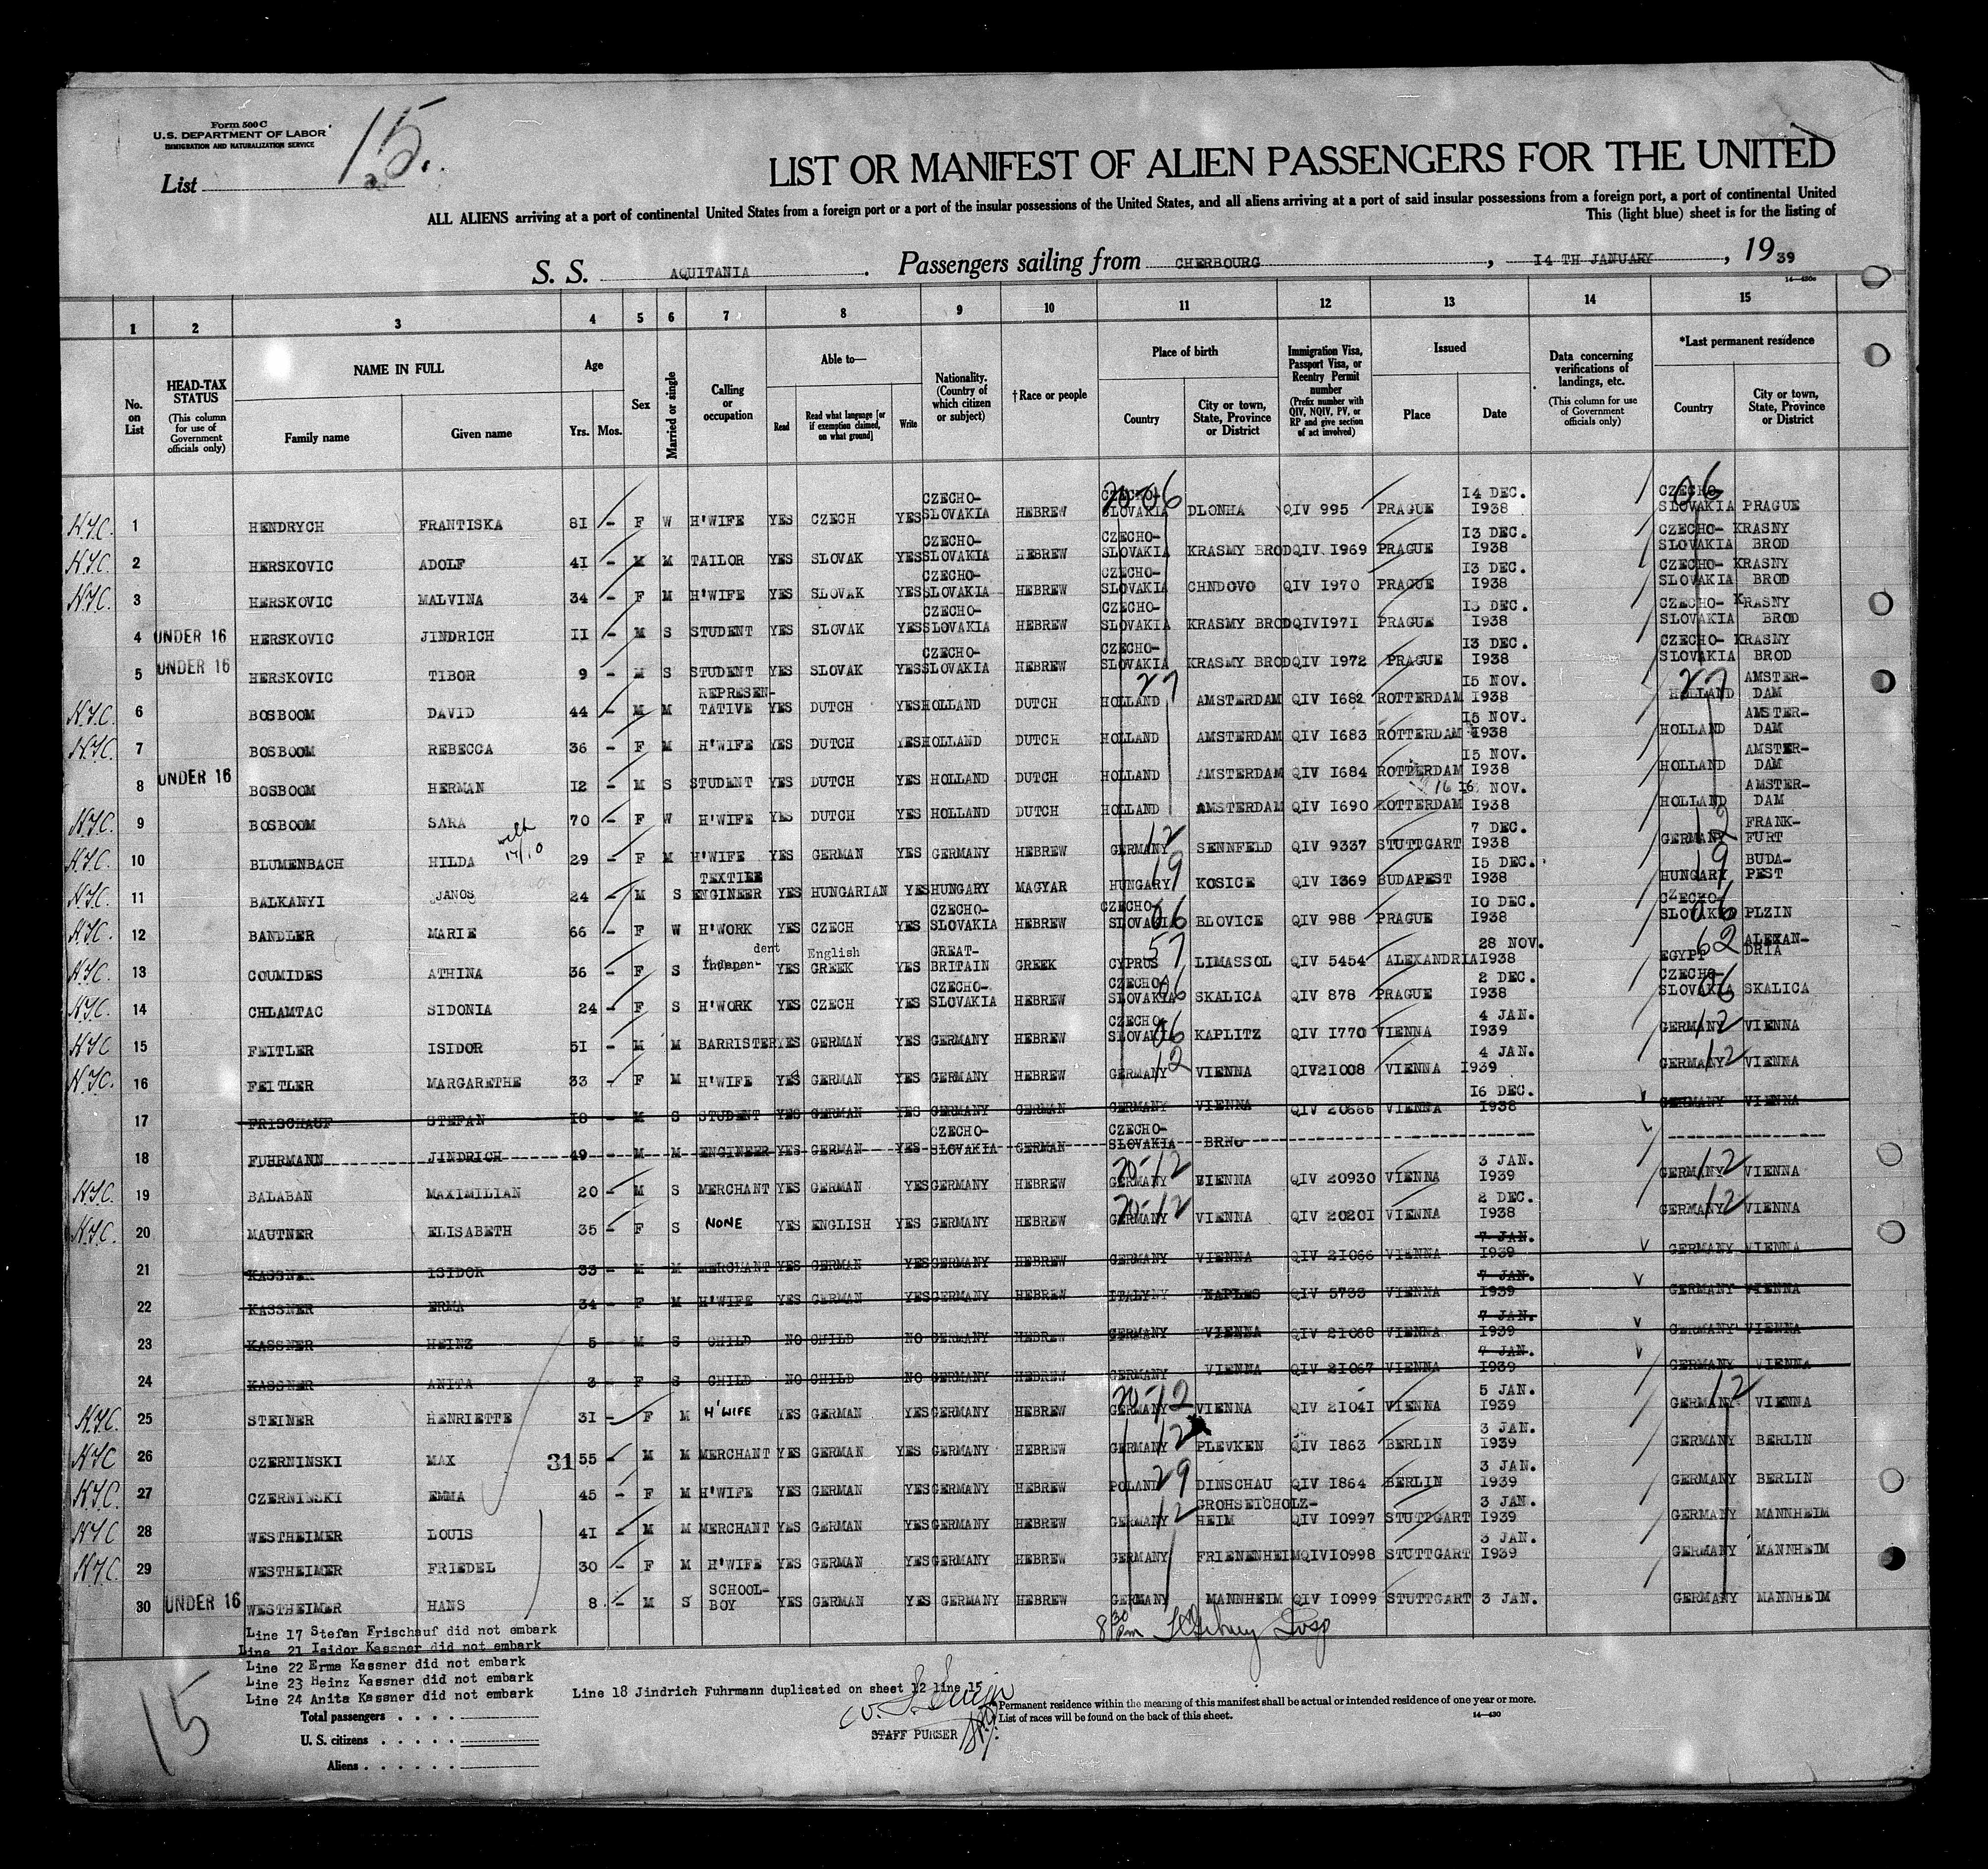 Form 500 C
U.S. DEPARTMENT OF LABOR
IMMIGRATION AND NATURALIZATION SERVICE
List 15.
LIST OR MANIFEST OF ALIEN PASSENGERS FOR THE UNITED
ALL ALIENS arriving at a port of continental United States from a foreign port or a port of the insular possessions of the United States, and all aliens arriving at a port of said insular possessions from a foreign port, a port of continental United
This (light blue) sheet is for the listing of
S. S. AQUITANIA. Passengers sailing from CHERBOURG, I4 TH JANUARY, 1939
14—430c
1 2 3 4 5 6 7 8 9 10 11 12 13 14 15
No. on List
HEAD-TAX STATUS (This column for use of Government officials only)
NAME IN FULL Family name Given name
Age Yrs. Mos.
Sex
Married or single
Calling or occupation
Able to— Read Read what language [or if exemption claimed, on what ground] Write
Nationality. (Country of which citizen or subject)
†Race or people
Place of birth Country City or town, State, Province or District
Immigration Visa, Passport Visa, or Reentry Permit number (Prefix number with QIV, NQIV, PV, or RP and give section of act involved)
Issued Place Date
Data concerning verifications of landings, etc. (This column for use of Government officials only)
*Last permanent residence Country City or town, State, Province or District
1 HENDRYCH FRANTISKA 8I - F W H'WIFE YES CZECH YES CZECHO-SLOVAKIA HEBREW CZECHO-SLOVAKIA DLONHA QIV 995 PRAGUE I4 DEC. I938 CZECHO-SLOVAKIA PRAGUE
2 HERSKOVIC ADOLF 4I - M M TAILOR YES SLOVAK YES CZECHO-SLOVAKIA HEBREW CZECHO-SLOVAKIA KRASMY BROD QIV I969 PRAGUE I3 DEC. I938 CZECHO-SLOVAKIA KRASNY BROD
3 HERSKOVIC MALVINA 34 - F M H'WIFE YES SLOVAK YES CZECHO-SLOVAKIA HEBREW CZECHO-SLOVAKIA CHNDOVO QIV I970 PRAGUE I3 DEC. I938 CZECHO-SLOVAKIA KRASNY BROD
4 UNDER 16 HERSKOVIC JINDRICH II - M S STUDENT YES SLOVAK YES CZECHO-SLOVAKIA HEBREW CZECHO-SLOVAKIA KRASMY BROD QIV I97I PRAGUE I3 DEC. I938 CZECHO-SLOVAKIA KRASNY BROD
5 UNDER 16 HERSKOVIC TIBOR 9 - M S STUDENT YES SLOVAK YES CZECHO-SLOVAKIA HEBREW CZECHO-SLOVAKIA KRASMY BROD QIV I972 PRAGUE I3 DEC. I938 CZECHO-SLOVAKIA KRASNY BROD
6 BOSBOOM DAVID 44 - M M REPRESEN-TATIVE YES DUTCH YES HOLLAND DUTCH HOLLAND AMSTERDAM QIV I682 ROTTERDAM I5 NOV. I938 HOLLAND AMSTER-DAM
7 BOSBOOM REBECCA 36 - F M H'WIFE YES DUTCH YES HOLLAND DUTCH HOLLAND AMSTERDAM QIV I683 ROTTERDAM I5 NOV. I938 HOLLAND AMSTER-DAM
8 UNDER 16 BOSBOOM HERMAN I2 - M S STUDENT YES DUTCH YES HOLLAND DUTCH HOLLAND AMSTERDAM QIV I684 ROTTERDAM I5 NOV. I938 HOLLAND AMSTER-DAM
9 BOSBOOM SARA 70 - F W H'WIFE YES DUTCH YES HOLLAND DUTCH HOLLAND AMSTERDAM QIV I690 ROTTERDAM 16 I6 NOV. I938 HOLLAND AMSTER-DAM
10 BLUMENBACH HILDA 29 - F M H'WIFE YES GERMAN YES GERMANY HEBREW GERMANY SENNFELD QIV 9337 STUTTGART 7 DEC. I938 GERMANY FRANK-FURT
11 BALKANYI JANOS 24 - M S TEXTILE ENGINEER YES HUNGARIAN YES HUNGARY MAGYAR HUNGARY KOSICE QIV I369 BUDAPEST I5 DEC. I938 HUNGARY BUDA-PEST
12 BANDLER MARIE 66 - F W H'WORK YES CZECH YES CZECHO-SLOVAKIA HEBREW CZECHO-SLOVAKIA BLOVICE QIV 988 PRAGUE I0 DEC. I938 CZECHO-SLOVAKIA PLZIN
13 COUMIDES ATHINA 36 - F S Independent YES English GREEK YES GREAT-BRITAIN GREEK CYPRUS LIMASSOL QIV 5454 ALEXANDRIA 28 NOV. I938 EGYPT ALEXAN-DRIA
14 CHLAMTAC SIDONIA 24 - F S H'WORK YES CZECH YES CZECHO-SLOVAKIA HEBREW CZECHO-SLOVAKIA SKALICA QIV 878 PRAGUE 2 DEC. I938 CZECHO-SLOVAKIA SKALICA
15 FEITLER ISIDOR 5I - M M BARRISTER YES GERMAN YES GERMANY HEBREW CZECHO-SLOVAKIA KAPLITZ QIV I770 VIENNA 4 JAN. I939 GERMANY VIENNA
16 FEITLER MARGARETHE 33 - F M H'WIFE YES GERMAN YES GERMANY HEBREW GERMANY VIENNA QIV2I008 VIENNA 4 JAN. I939 GERMANY VIENNA
17 FRISCHAUF STEFAN I8 - M S STUDENT YES GERMAN YES GERMANY GERMAN GERMANY VIENNA QIV 20666 VIENNA I6 DEC. I938 GERMANY VIENNA
18 FUHRMANN JINDRICH 49 - M M ENGINEER YES GERMAN YES CZECHO-SLOVAKIA GERMAN CZECHO-SLOVAKIA BRNO
19 BALABAN MAXIMILIAN 20 - M S MERCHANT YES GERMAN YES GERMANY HEBREW GERMANY VIENNA QIV 20930 VIENNA 3 JAN. I939 GERMANY VIENNA
20 MAUTNER ELISABETH 35 - F S NONE YES ENGLISH YES GERMANY HEBREW GERMANY VIENNA QIV 2020I VIENNA 2 DEC. I938 GERMANY VIENNA
21 KASSNER ISIDOR 33 - M M MERCHANT YES GERMAN YES GERMANY HEBREW GERMANY VIENNA QIV 2I066 VIENNA 7 JAN. I939 GERMANY VIENNA
22 KASSNER ERMA 34 - F M H'WIFE YES GERMAN YES GERMANY HEBREW ITALY NAPLES QIV 5733 VIENNA 7 JAN. I939 GERMANY VIENNA
23 KASSNER HEINZ 5 - M S CHILD NO CHILD NO GERMANY HEBREW GERMANY VIENNA QIV 2I068 VIENNA 7 JAN. I939 GERMANY VIENNA
24 KASSNER ANITA 3 - F S CHILD NO CHILD NO GERMANY HEBREW GERMANY VIENNA QIV 2I067 VIENNA 7 JAN. I939 GERMANY VIENNA
25 STEINER HENRIETTE 3I - F M H'WIFE YES GERMAN YES GERMANY HEBREW GERMANY VIENNA QIV 2I04I VIENNA 5 JAN. I939 GERMANY VIENNA
26 CZERNINSKI MAX 31 55 - M M MERCHANT YES GERMAN YES GERMANY HEBREW GERMANY PLEVKEN QIV I863 BERLIN 3 JAN. I939 GERMANY BERLIN
27 CZERNINSKI EMMA 45 - F M H'WIFE YES GERMAN YES GERMANY HEBREW POLAND DINSCHAU QIV I864 BERLIN 3 JAN. I939 GERMANY BERLIN
28 WESTHEIMER LOUIS 4I - M M MERCHANT YES GERMAN YES GERMANY HEBREW GERMANY GROHSEICHOLZ-HEIM QIV I0997 STUTTGART 3 JAN. I939 GERMANY MANNHEIM
29 WESTHEIMER FRIEDEL 30 - F M H'WIFE YES GERMAN YES GERMANY HEBREW GERMANY FRIENENHEIM QIVI0998 STUTTGART 3 JAN. I939 GERMANY MANNHEIM
30 UNDER 16 WESTHEIMER HANS 8 - M S SCHOOL-BOY YES GERMAN YES GERMANY HEBREW GERMANY MANNHEIM QIV I0999 STUTTGART 3 JAN. GERMANY MANNHEIM
Line 17 Stefan Frischauf did not embark
Line 21 Isidor Kassner did not embark
Line 22 Erma Kassner did not embark
Line 23 Heinz Kassner did not embark
Line 24 Anita Kassner did not embark
Line 18 Jindrich Fuhrmann duplicated on sheet 12 line 15
Total passengers . . . .
U. S. citizens . . . . .
Aliens . . . . . .
15
STAFF PURSER
*Permanent residence within the meaning of this manifest shall be actual or intended residence of one year or more.
†List of races will be found on the back of this sheet.
14—430